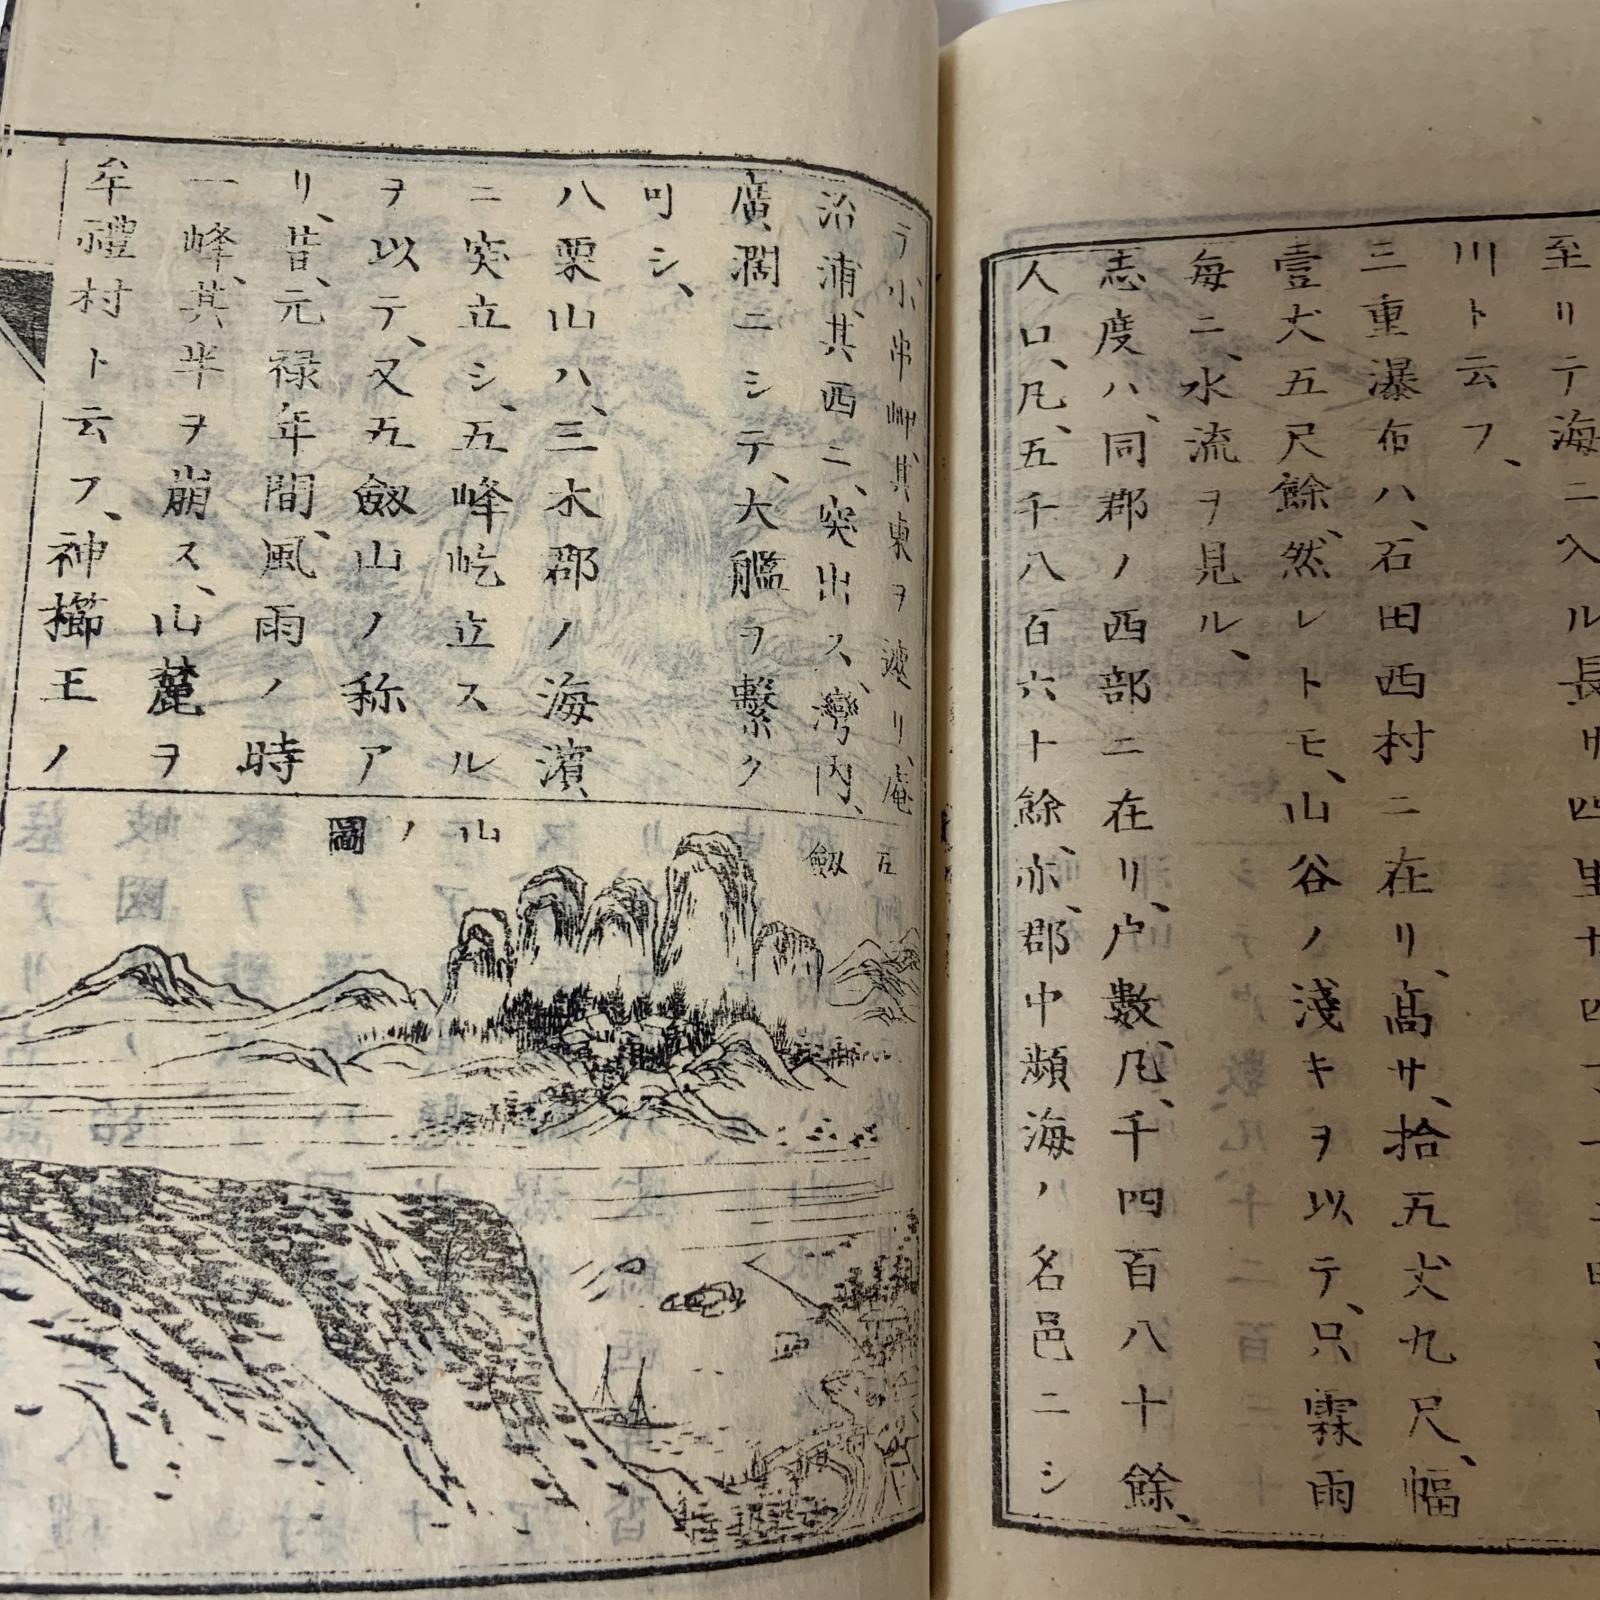 至リテ海ニ入ル長サ四里十四
川ト云フ、
三重瀑布ハ、石田西村ニ在リ、高サ、拾五丈九尺、幅
壹丈五尺餘、然レトモ、山谷ノ淺キヲ以テ、只霖雨
毎ニ、水流ヲ見ル、
志度ハ、同郡ノ西部ニ在リ、戸數、凡、千四百八十餘、
人口、凡、五千八百六十餘、亦、郡中瀕海ノ名邑ニシ
ラ小串岬、其東ヲ遮リ、庵
治浦、其西ニ、突出ス、灣内、
廣濶ニシテ、大艦ヲ繋ク
可シ、
八栗山ハ、三木郡ノ海濱
ニ突立シ、五峰屹立スル
ヲ以テ、又五劔山ノ称ア
リ、昔、元禄年間、風雨ノ時
一峰、其半ヲ崩ス、山麓ヲ
牟禮村ト云フ、神櫛王ノ
五劔山ノ圖